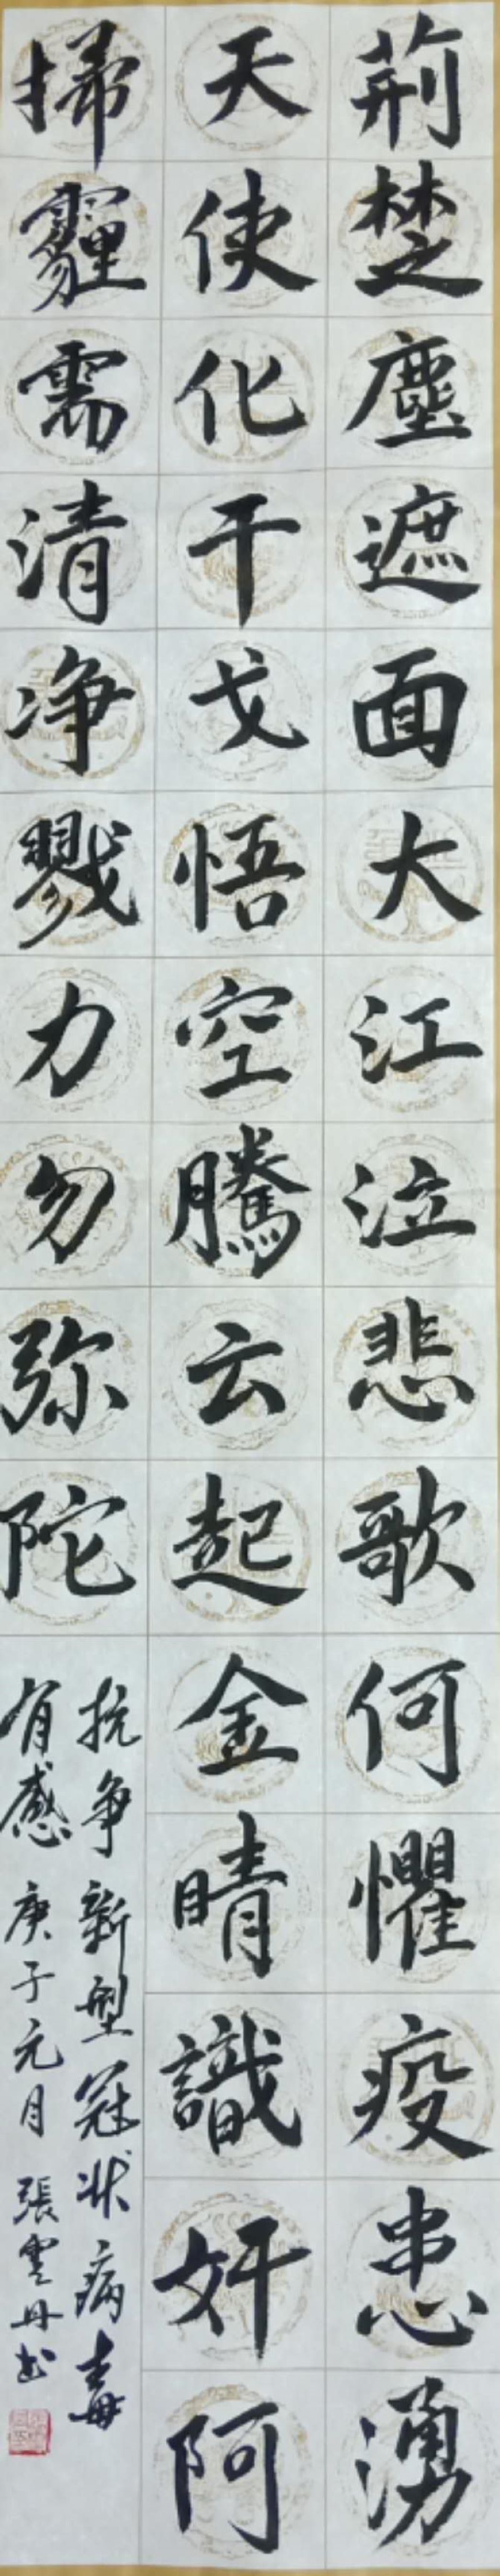 荊楚塵遮面大江泣悲歌何懼疫患湧
天使化干戈悟空騰云起金晴識奸阿
掃霾需清净戮力勿弥陀
抗争新型冠状病毒
有感 庚子元月 張雲丹书